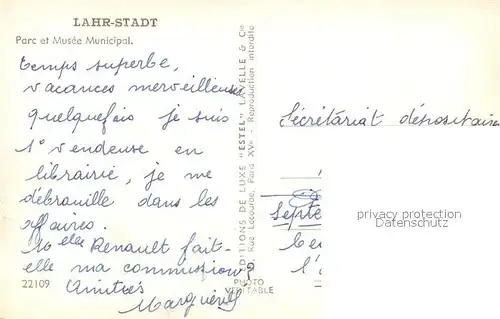 LAHR-STADT
Parc et Musée Municipal.
temps superbe,
vacances merveilleuses
quelquefois je suis
1° vendeuse en
librairie, je me
débrouille dans les
affaires.
Melle Renault fait-
elle ma commission?
Amitiés
Marguerite
22109
PHOTO
VERITABLE
EDITIONS DE LUXE "ESTEL" LAVELLE & Cie
Rue Lecourbe, Paris XVe - Reproduction interdite
Sécrétariat dépositaire
Septe
privacy protection
Datenschutz